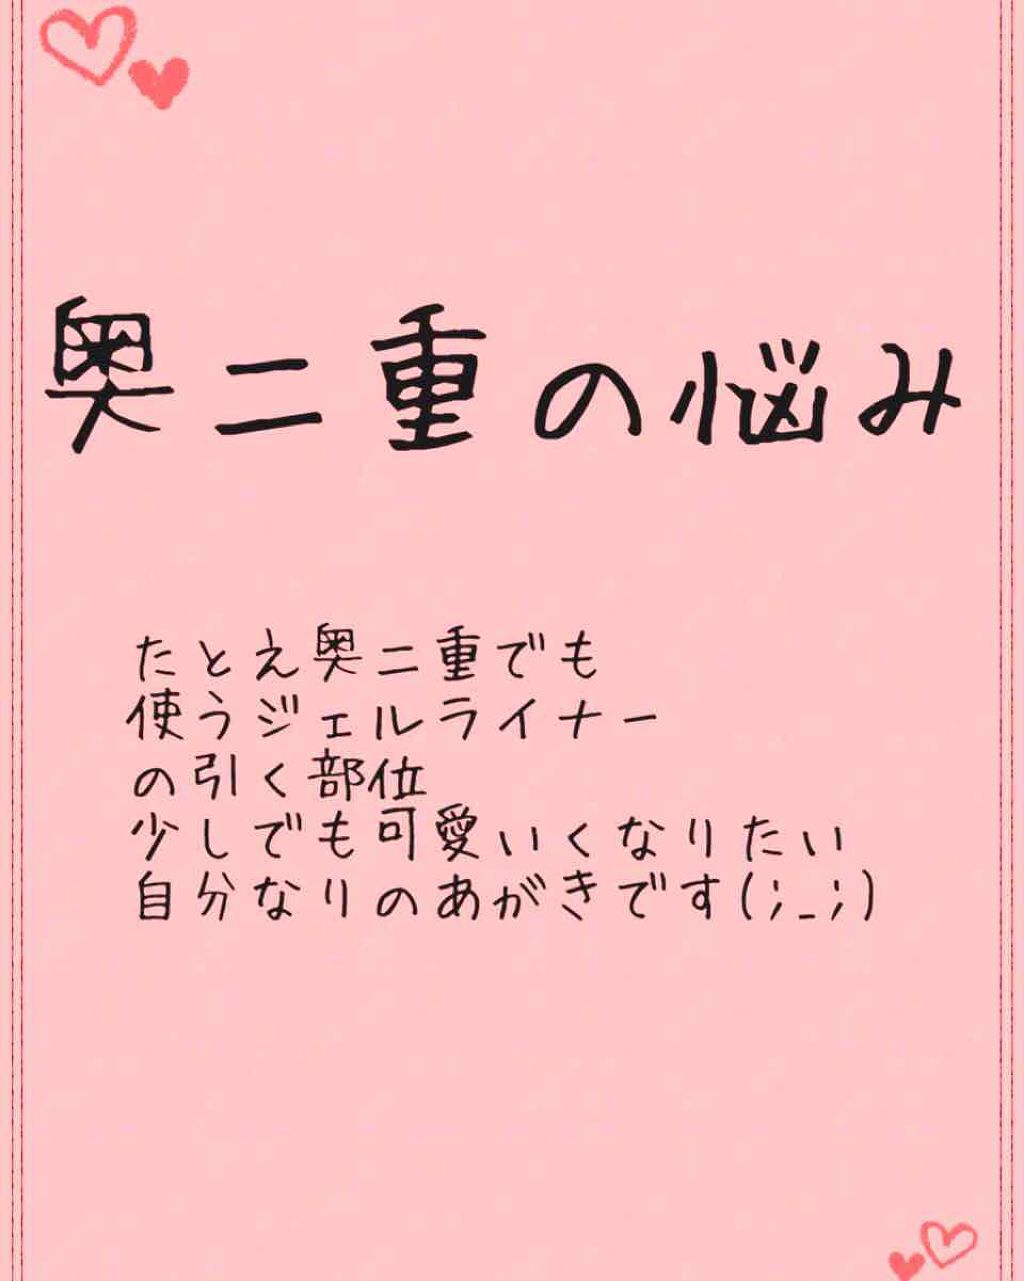 奥二重の悩み
たとえ奥二重でも
使うジェルライナー
の引く部位
少しでも可愛いくなりたい
自分なりのあがきです(;_;)